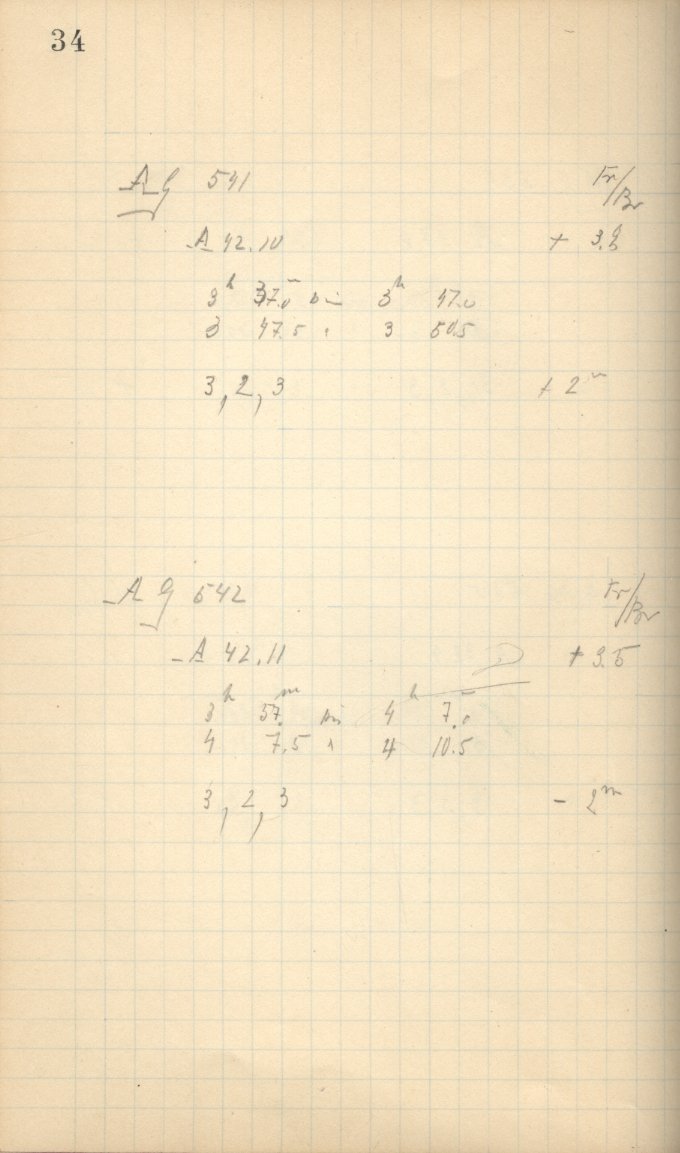 34
AG 541 Fr/Br
A 42.10 + 3.
3h 37.0m bis 3h 47.0
3 47.5 " 3 50.5
3, 2, 3 + 2m
AG 542 Fr/Br
A 42.11 + 3.5
3h 57.m bis 4h 7.0m
4 7.5 " 4 10.5
3, 2, 3 - 2m